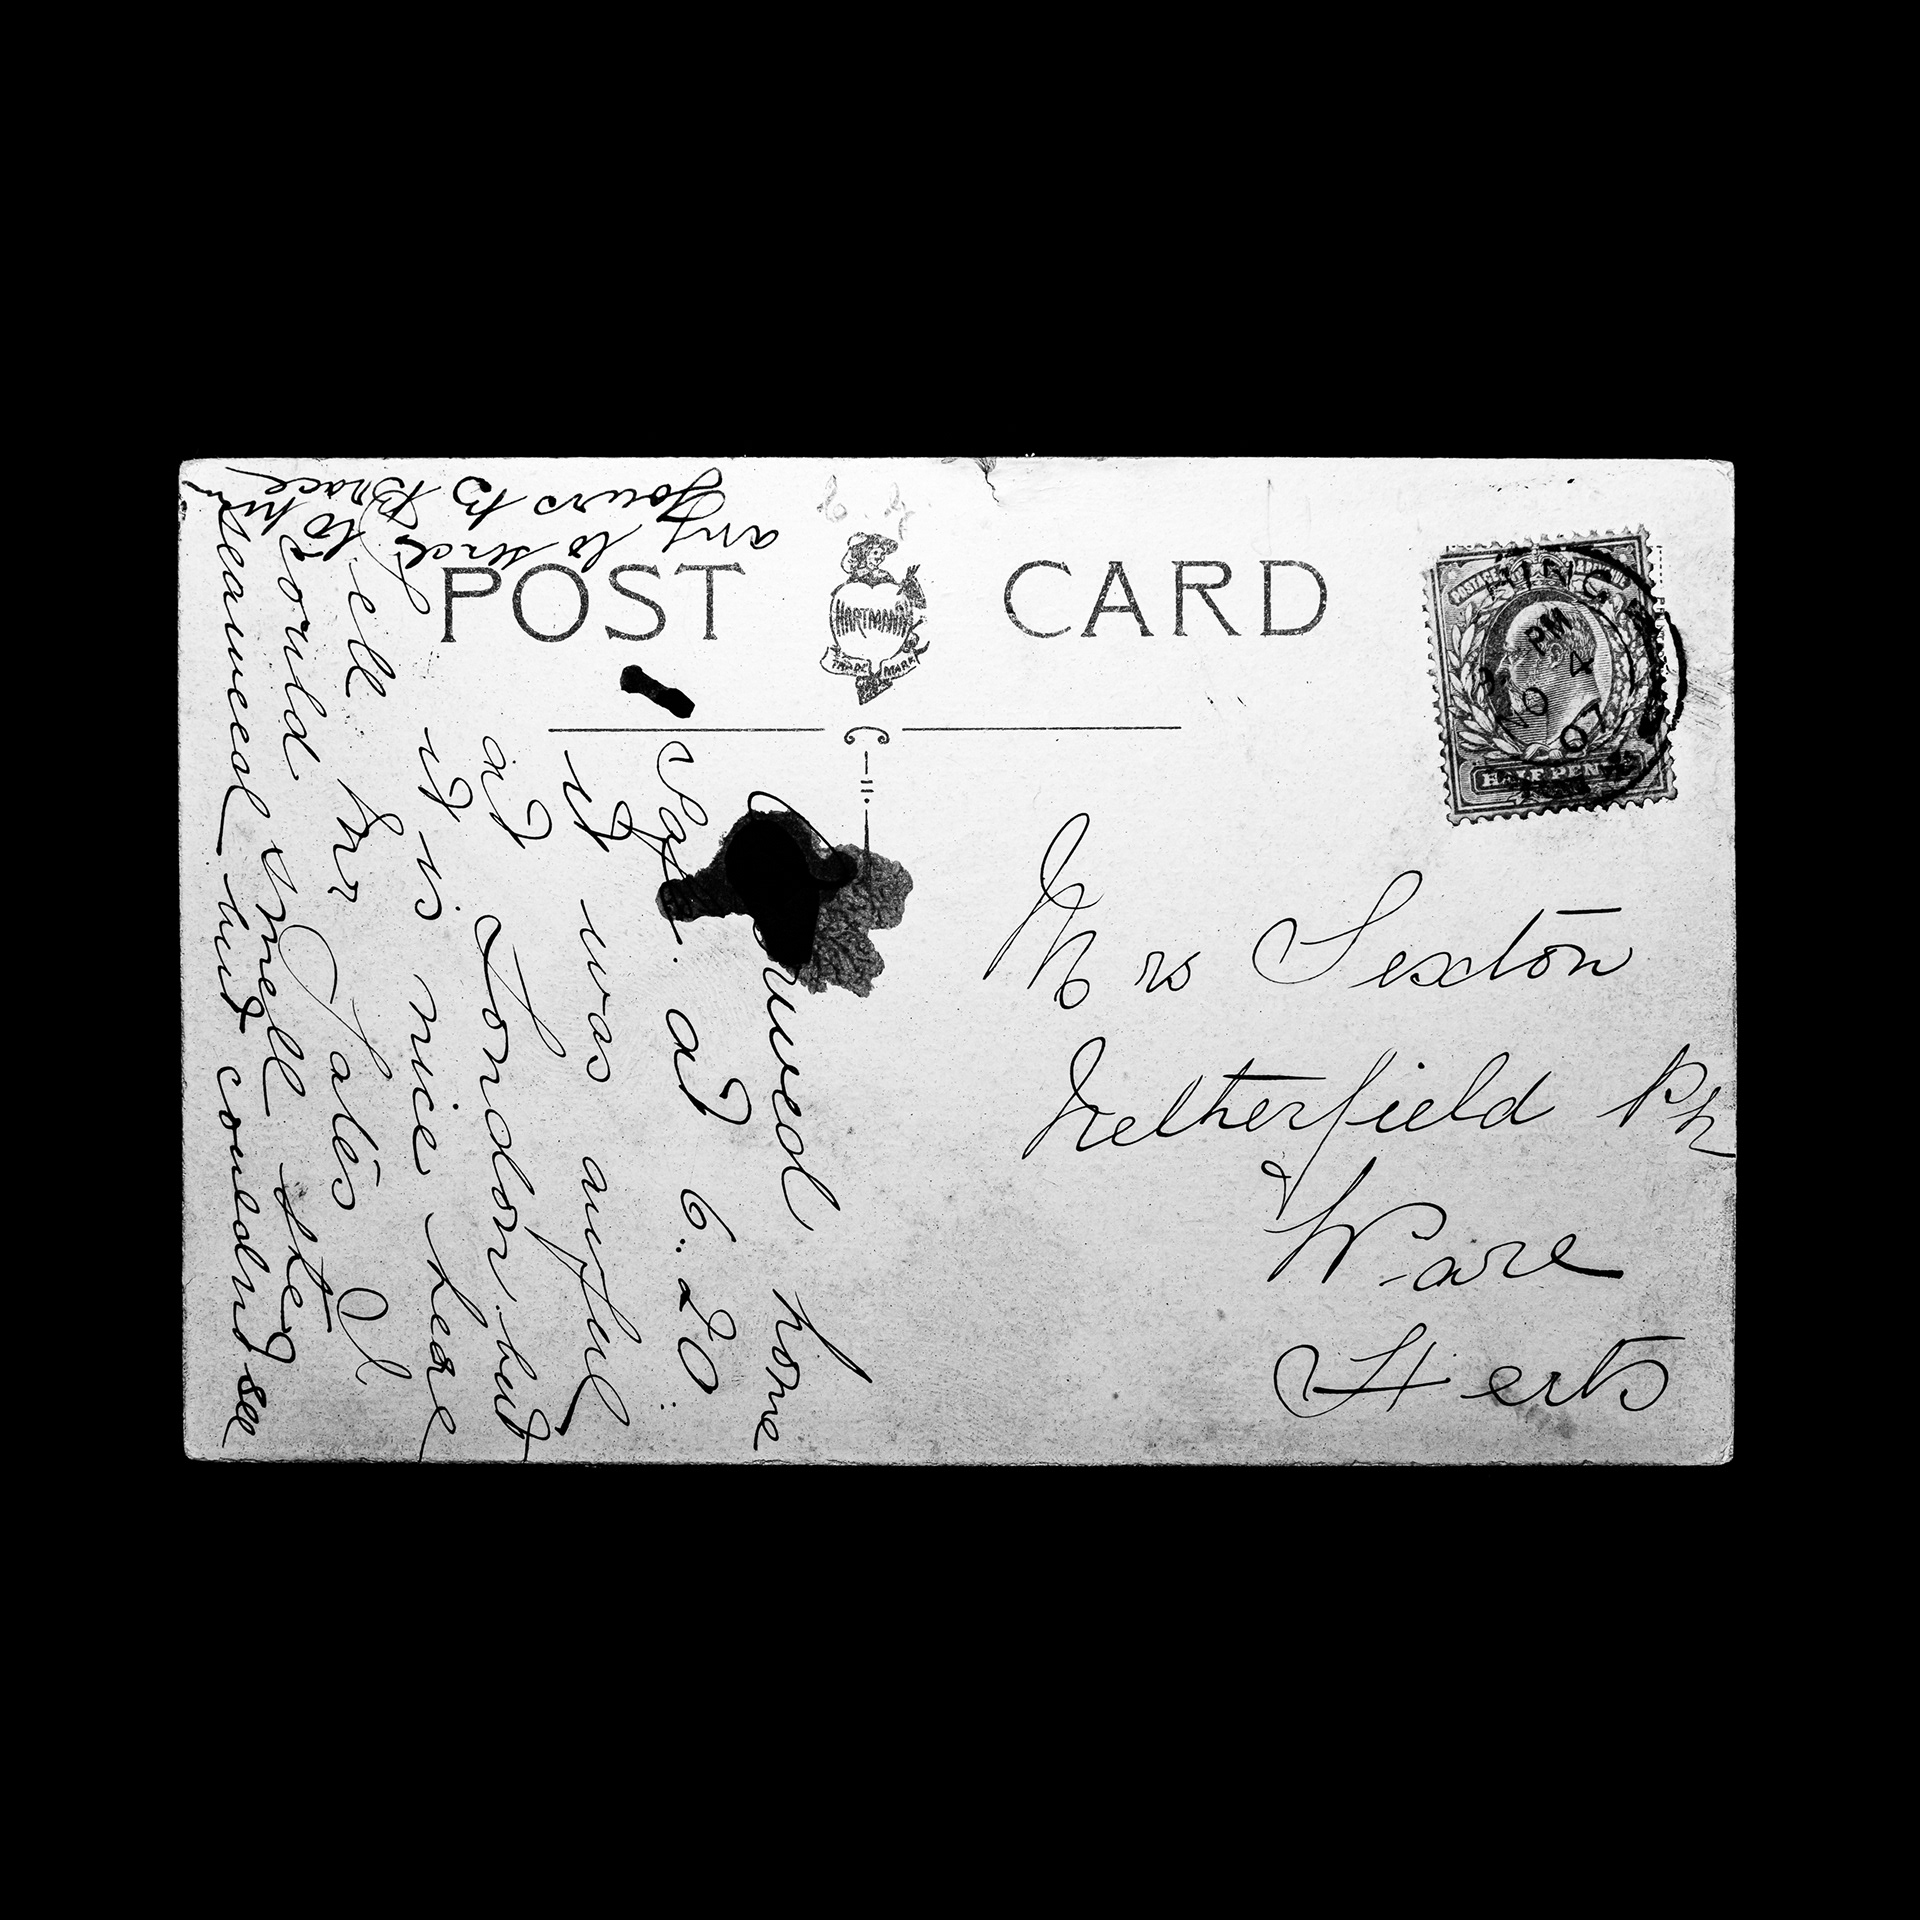 POST CARD
HARTMANN
TRADE MARK
POSTAGE
HALF PENNY
PM
NO 4
07
Mrs Sexton
Netherfield Rd
Ware
Herts
home
Safe. at 6.20
it was awful
at London. but
it is nice here
tell Mr Gates I
could smell the
seaweed but couldnt see
any to send
yours to